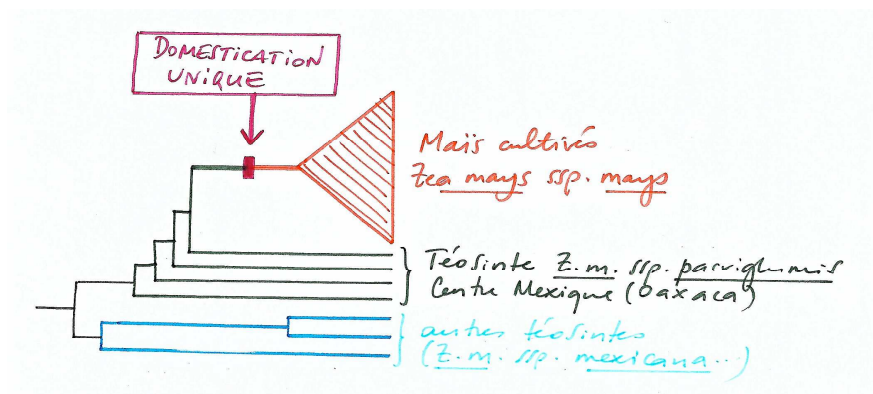 DOMESTICATION
UNIQUE
Maïs cultivés
Zea mays ssp. mays
Téosinte Z.m. ssp. parviglumis
Centre Mexique (Oaxaca)
autres téosintes
(Z.m. ssp. mexicana...)